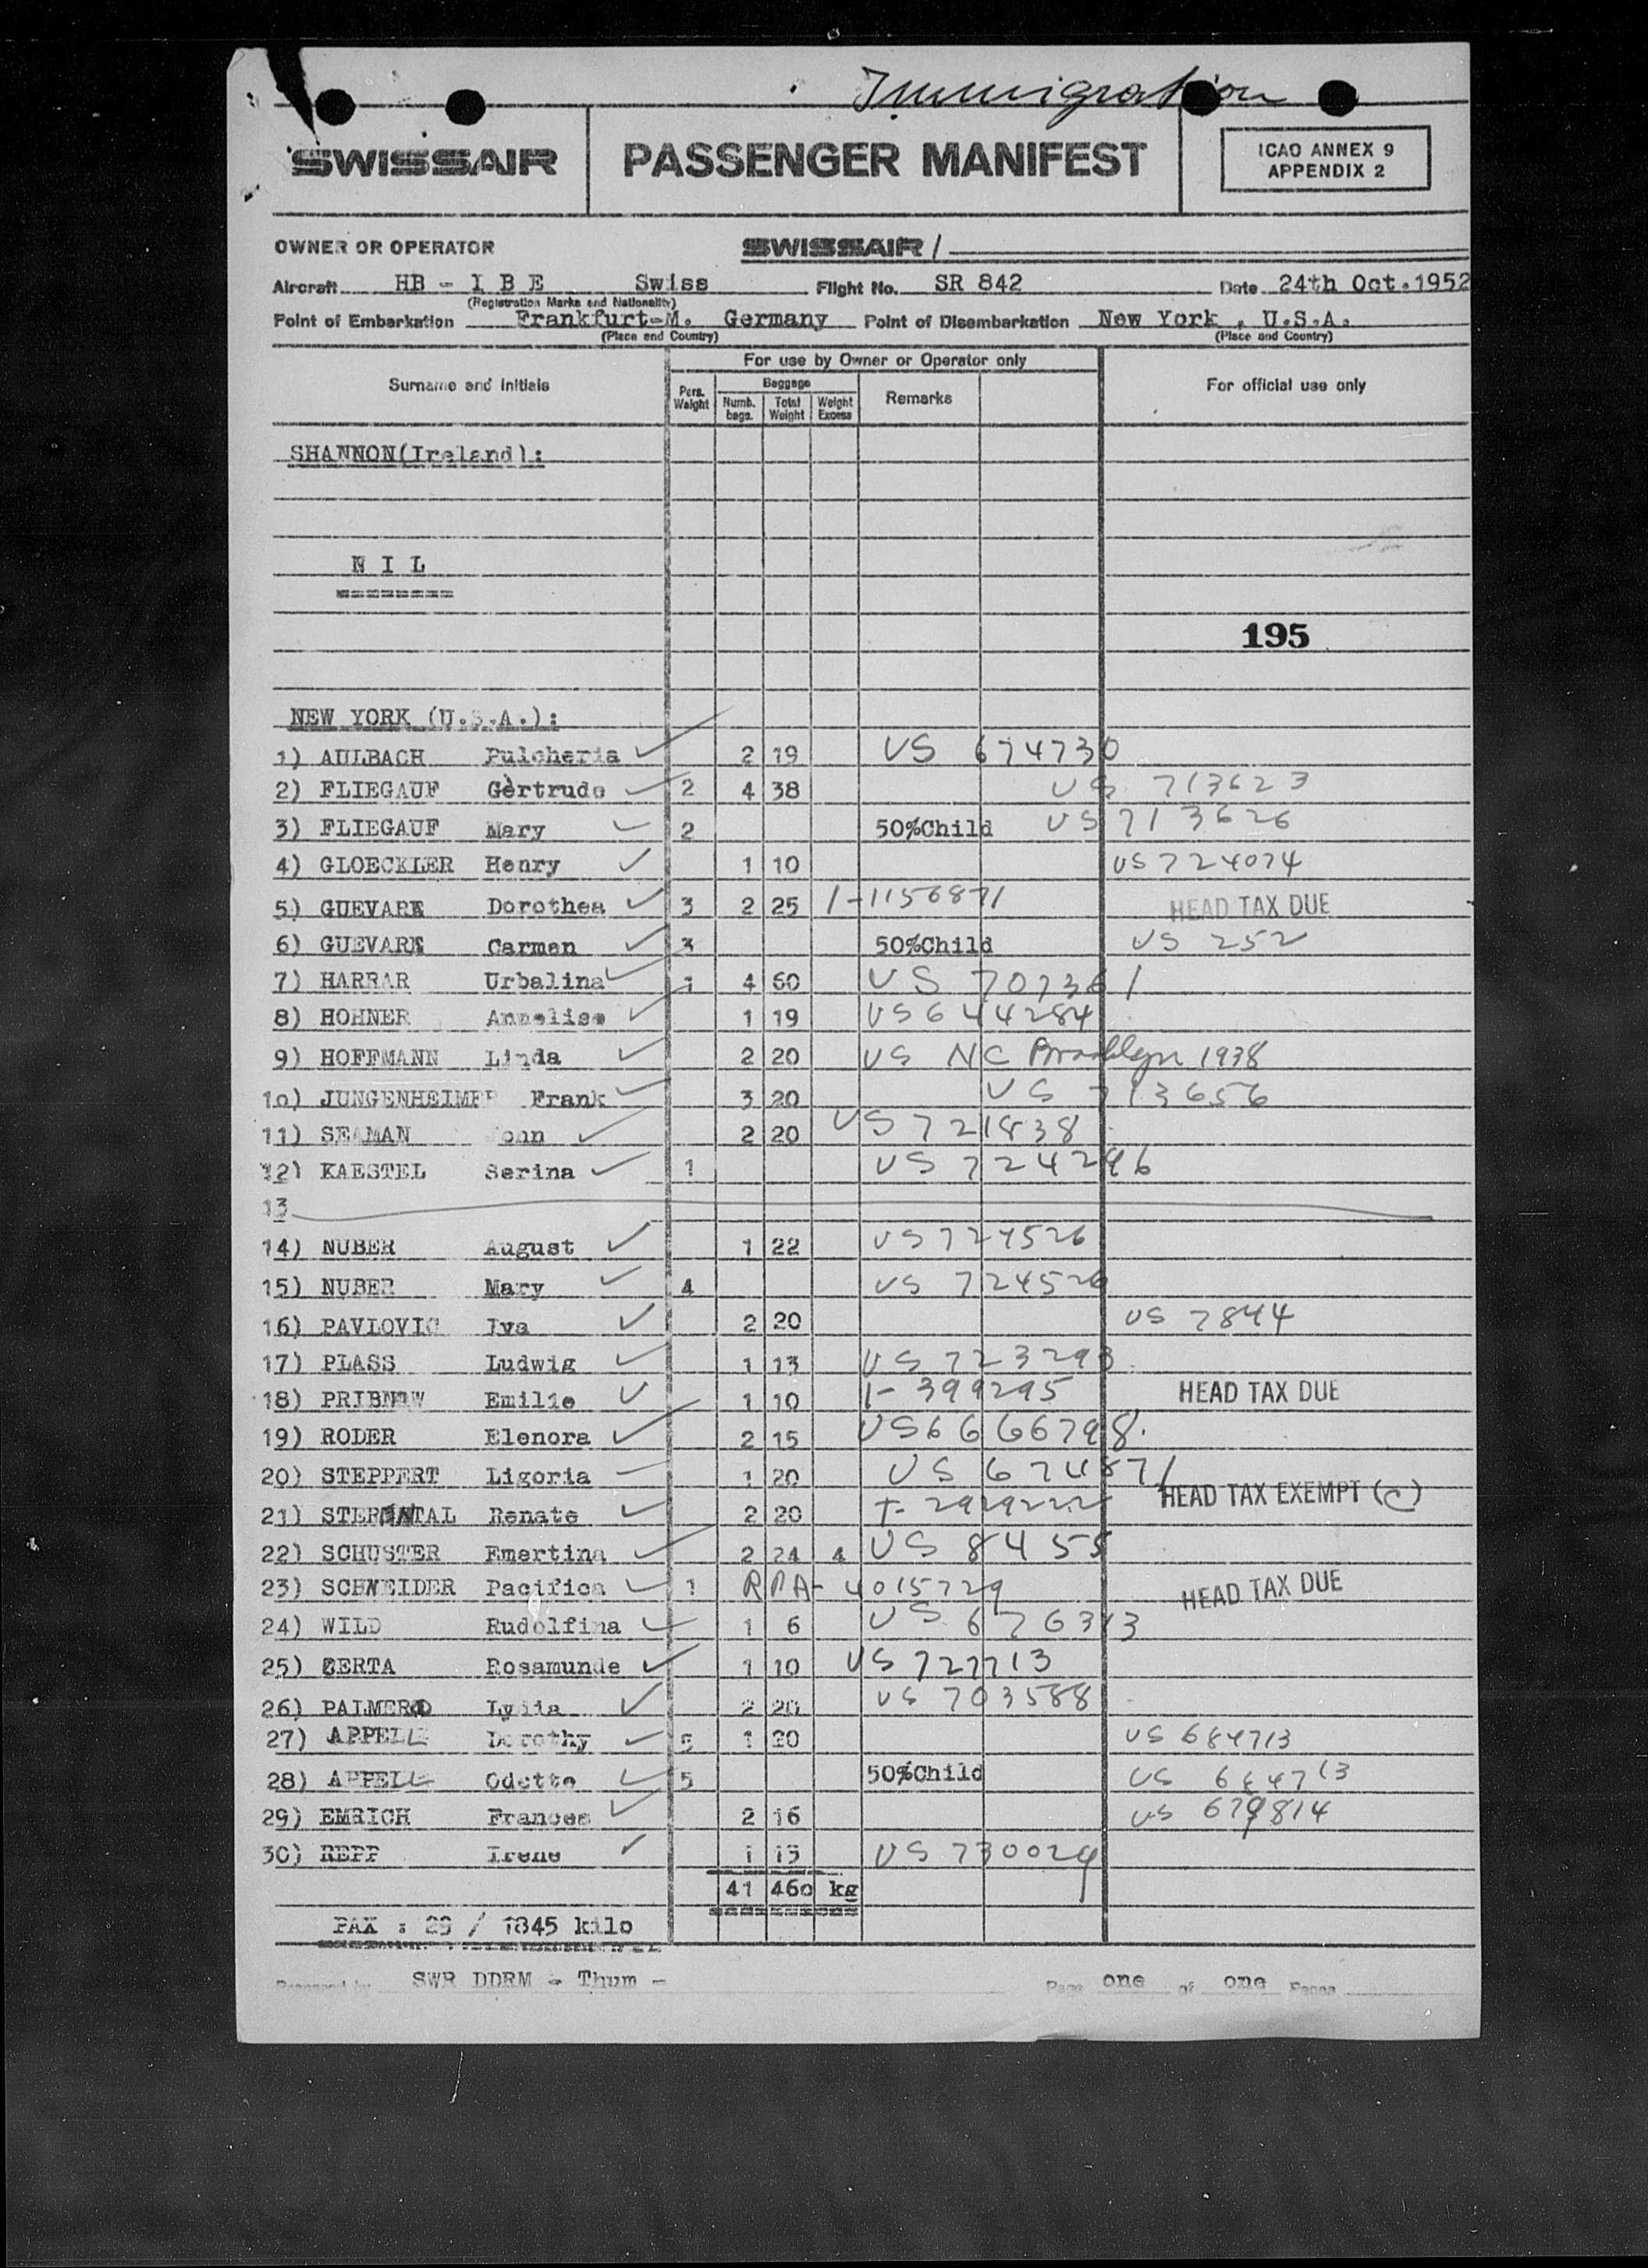 Immigration
SWISSAIR PASSENGER MANIFEST ICAO ANNEX 9
APPENDIX 2
OWNER OR OPERATOR SWISSAIR /
Aircraft HB - I B E Swiss Flight No. SR 842 Date 24th Oct. 1952
(Registration Marks and Nationality)
Point of Embarkation Frankfurt-M. Germany Point of Disembarkation New York , U.S.A.
(Place and Country) (Place and Country)
For use by Owner or Operator only
Surname and Initials Pers. Weight Baggage Numb. bags. Total Weight Weight Excess Remarks For official use only
SHANNON(Ireland):
N I L
========
195
NEW YORK (U.S.A.):
1) AULBACH Pulcheria 2 19 US 674730
2) FLIEGAUF Gertrude 2 4 38 US 713623
3) FLIEGAUF Mary 2 50%Child US 713626
4) GLOECKLER Henry 1 10 US 724074
5) GUEVARA Dorothea 3 2 25 1-1156871 HEAD TAX DUE
6) GUEVARA Carmen 3 50%Child US 252
7) HARRAR Urbalina 1 4 60 US 707361
8) HOHNER Annelise 1 19 US 644284
9) HOFFMANN Linda 2 20 US NC Brooklyn 1938
10) JUNGENHEIMER Frank 3 20 US 713656
11) SEAMAN John 2 20 US 721838
12) KAESTEL Serina 1 US 724296
13
14) NUBER August 1 22 US 724526
15) NUBER Mary 4 US 724526
16) PAVLOVIC Iva 2 20 US 7844
17) PLASS Ludwig 1 13 US 723293
18) PRIBNOW Emilie 1 10 1-399295 HEAD TAX DUE
19) RODER Elenora 2 15 US 6666798
20) STEPPERT Ligoria 1 20 US 674871
21) Renate 2 20 HEAD TAX EXEMPT (C)
22) SCHUSTER Emertina 2 24 4 US 8455
23) SCHNEIDER Pacifica 1 RPA- 4015729 HEAD TAX DUE
24) WILD Rudolfina 1 6 US 676313
25) BERTA Rosamunde 1 10 US 727713
26) Lydia 2 20 US 703588
27) APPELL Dorothy 5 1 20 US 684713
28) APPELL Odette 5 50%Child US 684713
29) EMRICH Frances 2 16 US 679814
30) REPP Irene 1 13 US 730029
41 460 kg
PAX : 29 / 1845 kilo
Prepared by SWR DDRM - Thum - Page one of one Pages